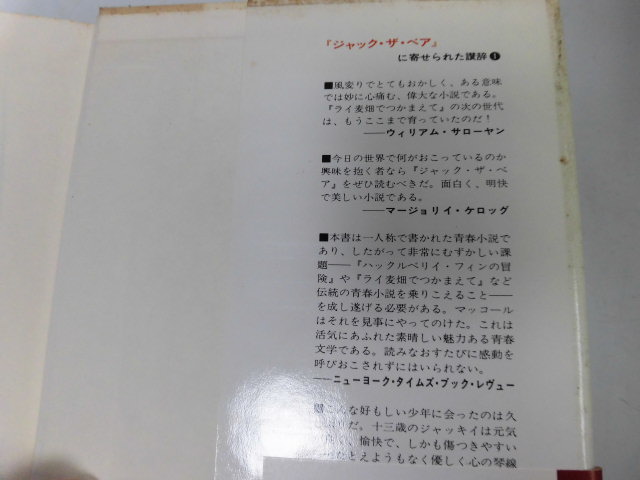 『ジャック・ザ・ベア』
に寄せられた讃辞❶
■風変りでとてもおかしく、ある意味
では妙に心痛む、偉大な小説である。
『ライ麦畑でつかまえて』の次の世代
は、もうここまで育っていたのだ！
――ウィリアム・サローヤン
■今日の世界で何がおこっているのか
興味を抱く者なら『ジャック・ザ・ベ
ア』をぜひ読むべきだ。面白く、明快
で美しい小説である。
――マージョリイ・ケロッグ
■本書は一人称で書かれた青春小説で
あり、したがって非常にむずかしい課
題――『ハックルベリイ・フィンの冒
険』や『ライ麦畑でつかまえて』など
伝統の青春小説を乗りこえること――
を成し遂げる必要がある。マッコール
はそれを見事にやってのけた。これは
活気にあふれた素晴しい魅力ある青春
文学である。読みなおすたびに感動を
呼びおこされずにはいられない。
――ニューヨーク・タイムズ・ブック・レヴュー
■こんな好もしい少年に会ったのは久
だ。十三歳のジャッキイは元気
愉快で、しかも傷つきやすい
たとえようもなく優しく心の琴線